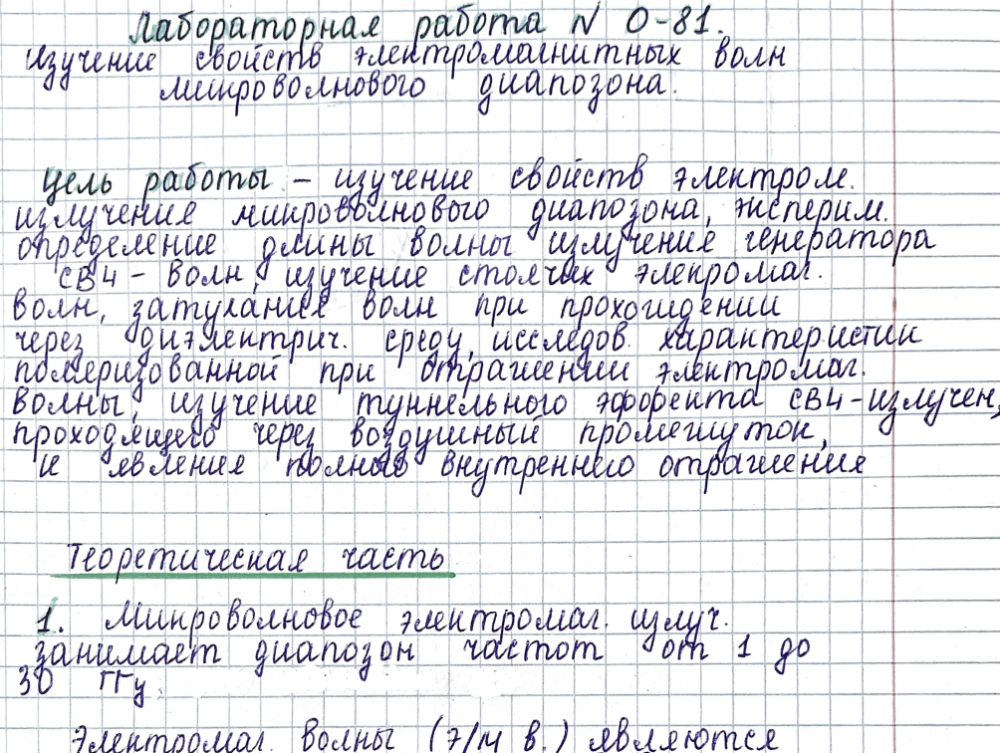 Лабораторная работа N О-81.
Изучение свойств электромагнитных волн
микроволнового диапозона.
Цель работы – изучение свойств электром.
излучения микроволнового диапозона, эксперим.
определение длины волны излучения генератора
СВЧ - волн, изучение стоячих элекромаг.
волн, затухания волн при прохождении
через диэлектрич. среду, исследов. характеристик
поляризованной при отражении электромаг.
волны, изучение туннельного эффекта СВЧ-излучен,
проходящего через воздушный промежуток,
и явления полного внутреннего отражения
Теоретическая часть
1. Микроволновое электромаг. излуч.
занимает диапозон частот от 1 до
30 ГГц.
Электромаг. волны (э/м в.) являются